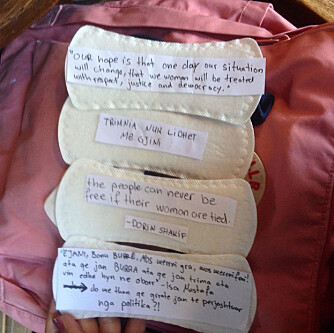 "OUR hope is that one day our situation
will change, that we women will be treated
with respect, justice and democracy."
TRIMNIA NUK LIDHET
ME GJINI
the people can never be
free if their women are tied.
-DORIN SHARIF
"EJANI, Bomu BURRË, MOS merrni gra, mos merrni fëmi!
ata që jan BURRA ata që jan trima ata
vin edhe hyn ne oborr" - Isa Mustafa
do me than që gratë jan të perjashtuar
nga politika?!